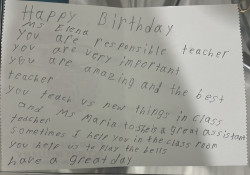 Happy Birthday
Ms Elena
you are responsible teacher
you are very important
you are amazing and the best
teacher
you teach us new things in class
and Ms Maria to a great assistant
teacher
sometimes I help you in the class room
you help us to play the bells
have a great day